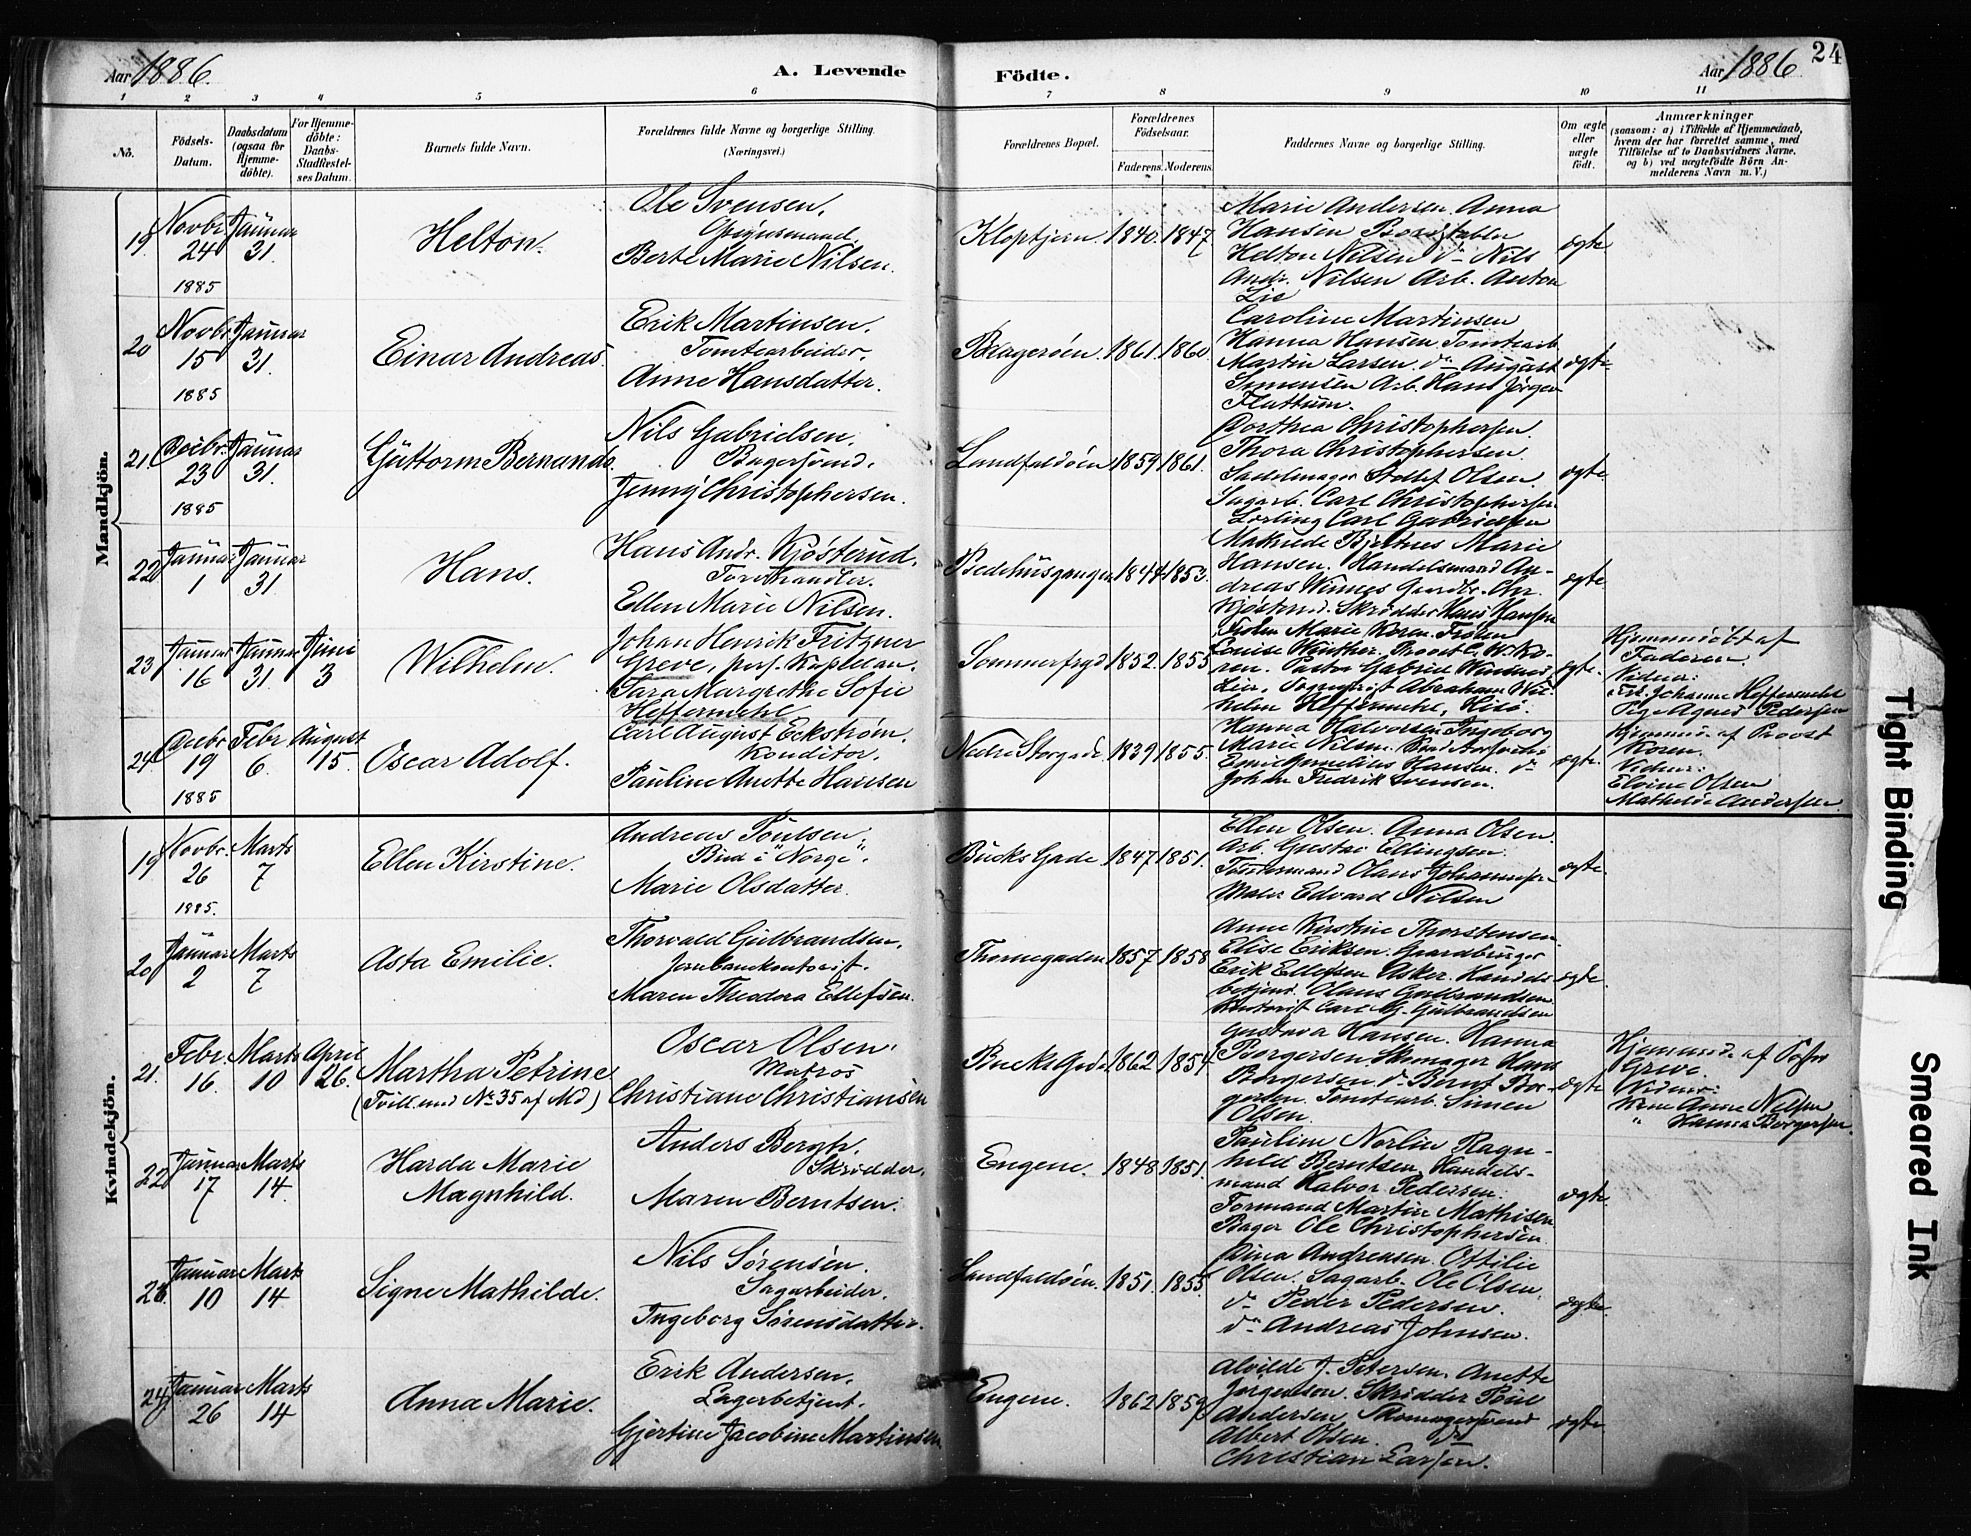 Aar 1886.
A. Levende Födte.
Aar 1886.
24
1 2 3 4 5 6 7 8 8 9 10 11
No.
Födsels-
Datum.
Daabsdatum
(ogsaa for
Hjemme-
döbte).
For Hjemme-
döbte:
Daabs-
Stadfæstel-
ses Datum.
Barnets fulde Navn.
Forældrenes fulde Navne og borgerlige Stilling.
(Næringsvei.)
Forældrenes Bopæl.
Forældrenes
Födselsaar.
Faderens. Moderens.
Faddernes Navne og borgerlige Stilling.
Om ægte
eller
uægte
födt.
Anmærkninger
(saasom: a) i Tilfælde af Hjemmedaab,
hvem der har forrettet samme, med
Tilföielse af to Daabsvidners Navne,
og b) ved uægtefödte Börn An-
melderens Navn m. V.)
Mandkjön.
19.
Novbr.
24
1885
Januar
31.
Helton.
Ole Svensen.
Berte Marie Nilsen.
Kloptjern. 1840. 1847
Marie Andersen. Anna
Hansen
Helton Nilsen do Nils
Andr. Nilsen Arb. Anton
Lie
ægte
20
Novbr
15
1885
Januar
31.
Einar Andreas.
Erik Martinsen.
Tomtearbeider.
Anne Hansdatter.
Bragerøen. 1861. 1860.
Caroline Martinsen
Hanna Hansen Tomtearb
Martin Larsen. do August
Simensen Arb. Hans Jörgen
Flattum.
ægte
21
Decbr.
23
1885
Januar
31.
Guttorm Bernando.
Nils Gabrielsen.
Bagersvend.
Jenny Christophersen.
Landfaldöen 1859 1861.
Dorthea Christophersen.
Thora Christophersen
Sadelmager Olsen
Sagarb. Carl Christophersen
Carl Gabrielsen
ægte
22
Januar
1
Januar
31.
Hans.
Hans Andr. Kjösterud.
Ellen Marie Nilsen.
Bedehusgangen 1844 1853.
Mathilde Bjeltnes Marie
Hansen. Handelsmand An-
dreas Winnes Chr.
Kjösterud. Skrædder Hans Hansen
ægte
23
Januar
16
Januar
31.
Juni
3
Wilhelm.
Johan Henrik Fritzner
Greve, pers. Kapellan.
Sara Margrethe Sofie
Heffermehl
Sommerfryd 1852. 1855
Frøken Marie Koren. Frøken
Louise Winther. Provst C. W. Ko-
ren. Pastor Gabriel
Lier. Sogneprest Abraham Wil-
helm Heffermehl, Hisö.
ægte.
Hjemmedøbt af
Faderen.
Vidner:
Frk. Johanne Heffermehl
Pige Agnes Pedersen
24
Decbr
19
1885
Febr
6.
August
15.
Oscar Adolf.
Carl August Eckström.
Konditor.
Pauline Anette Hansen
Nedre Storgade 1839 1855.
Hanna Halvorsen Ingeborg
Marie Nilsen.
Emil Cornelius Hansen. do
Johan Fredrik Svensen.
ægte.
Hjemmed. af Provst
Koren.
Vidner:
Elvine Olsen
Mathilde Andersen.
Kvindekjön.
19
Novbr.
26
1885.
Marts
7
Ellen Kirstine.
Andreas Poulsen.
Bud i "Norge".
Marie Olsdatter.
Bucks Gade 1847 1851.
Ellen Olsen. Anna Olsen.
Arb. Gustav Ellingsen.
Olaus Johannesen
Maler Edvard Nilsen
ægte.
20
Januar
2
Marts
7
Asta Emilie.
Thorvald Gulbrandsen.
Jernbanekontorist.
Maren Theodora Ellefsen.
Thornegaden 1857 1858
Anne Kirstine Thorstensen
Elise Eriksen. Gaardbruger
Erik Ellefsen Asker. Handels
betjent. Olaus Gulbrandsen
Kontorist Carl Gulbrandsen
ægte.
21.
Febr.
16.
Marts
10
April
26.
Martha Petrine
(Tvill. med No 35 af Md)
Oscar Olsen.
Matros
Christiane Christiansen
Bucks Gade 1862 1854
Gustava Hansen. Hanna
Borgersen. Skomager Hans
Borgersen do Bernt Bor-
gersen. Tomtearb. Simen
Olsen.
ægte.
Hjemmedø. af Sogn
Greve.
Vidner:
Kone Anne Nilsen
" Hanna Borgersen.
22
Januar
17
Marts
14.
Harda Marie
Magnhild.
Anders Bergh.
Skrædder.
Maren Berntsen.
Engene. 1848 1851.
Pauline Norlin Ragn-
hild Berntsen. Handels-
mand Halvor Pedersen.
Formand Martin Mathisen
Bager Ole Christophersen
ægte.
23.
Januar
10
Marts
14
Signe Mathilde.
Nils Sørensen.
Sagarbeider.
Ingeborg Sørensdatter.
Landfaldöen. 1851. 1855.
Dina Andreasen. Ottilie
Olsen. Sagarb. Ole Olsen.
do Peder Pedersen.
do Andreas Johnsen.
ægte.
24
Januar
26
Marts
14
Anna Marie.
Erik Andersen.
Lagerbetjent.
Gjertine Jacobine Martinsen
Engene. 1862 1859
Alvilde J. Petersen. Anette
Jørgensen. Skrædder Poul
Andersen. Skomagersvend
Albert Olsen. do
Christian Larsen.
ægte.
Tight Binding
Smeared Ink